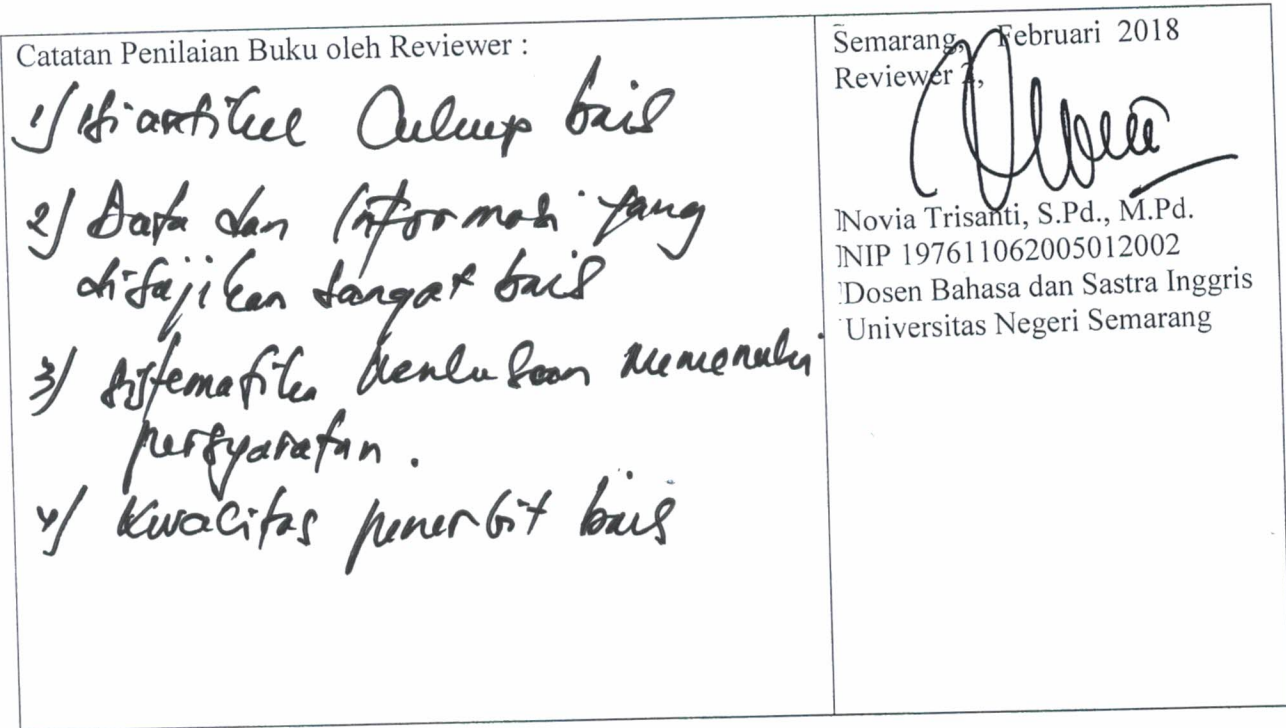 Catatan Penilaian Buku oleh Reviewer :
1) Isi artikel Cukup baik
2) Data dan Informasi yang
disajikan sangat baik
3) Sistematika penulisan memenuhi
persyaratan.
4) Kwalitas penerbit baik
Semarang, Februari 2018
Reviewer 2,
Novia Trisanti, S.Pd., M.Pd.
NIP 197611062005012002
Dosen Bahasa dan Sastra Inggris
Universitas Negeri Semarang